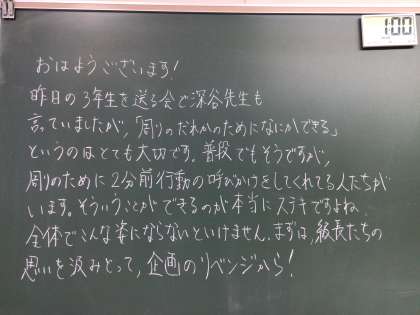 100
おはようございます!
昨日の3年生を送る会で深谷先生も
言っていましたが,「周りのだれかのためになにかできる」
というのはとても大切です。普段でもそうですが,
周りのために2分前行動の呼びかけをしてくれてる人たちが
います。そういうことができるのが本当にステキですよね.
全体でこんな姿にならないといけません.まずは,級長たちの
思いを汲みとって,企画のリベンジから!